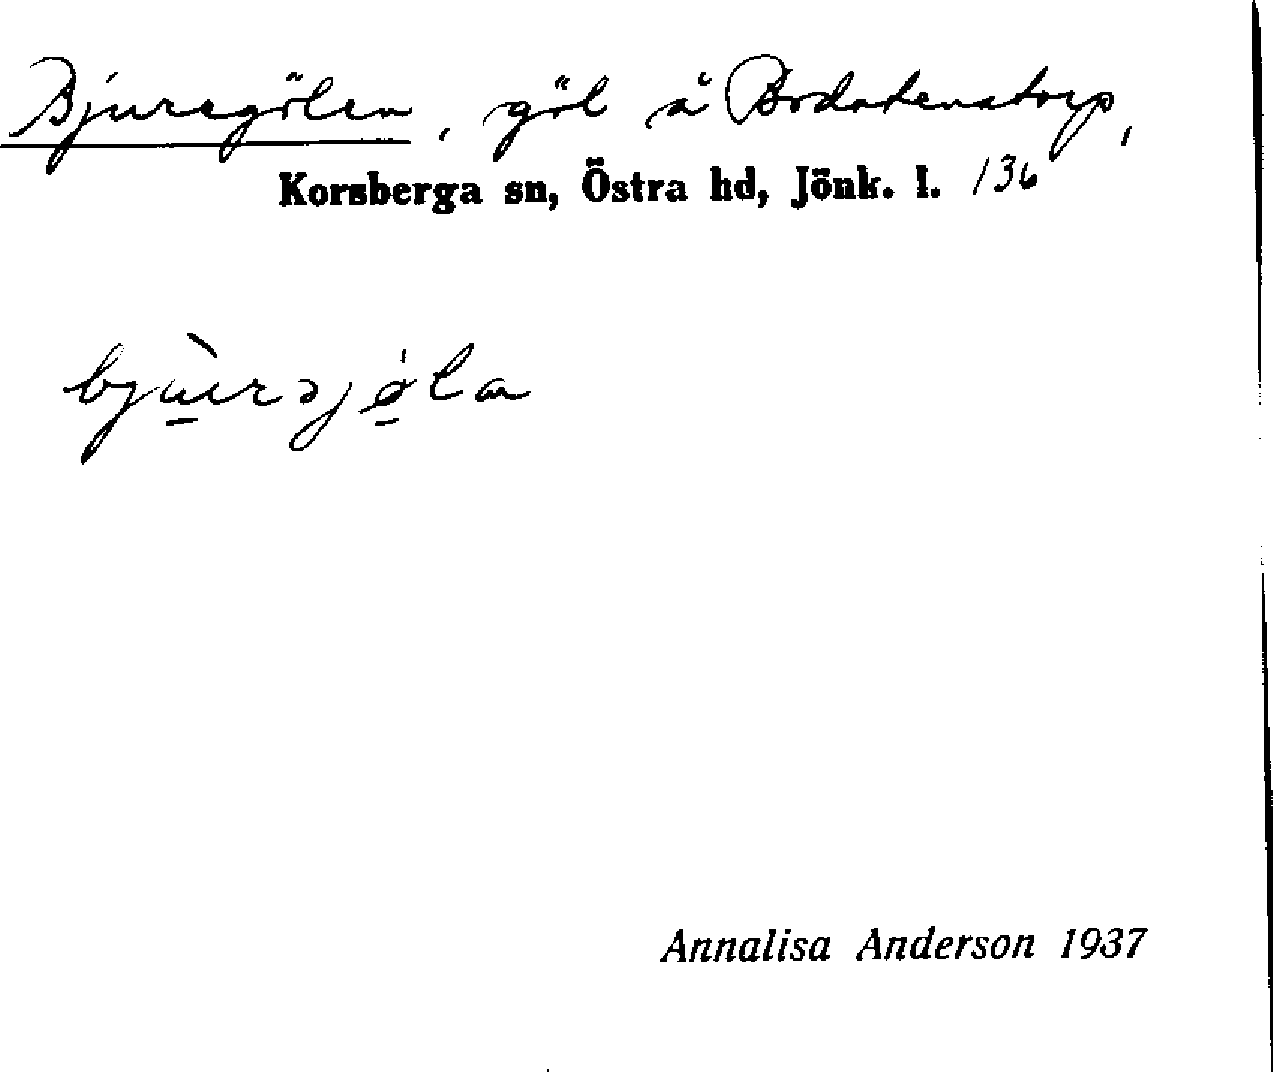 Bjuregölen, göl å Bodatenstorp,
Korsberga sn, Östra hd, Jönk. l. 136
Annalisa Anderson 1937